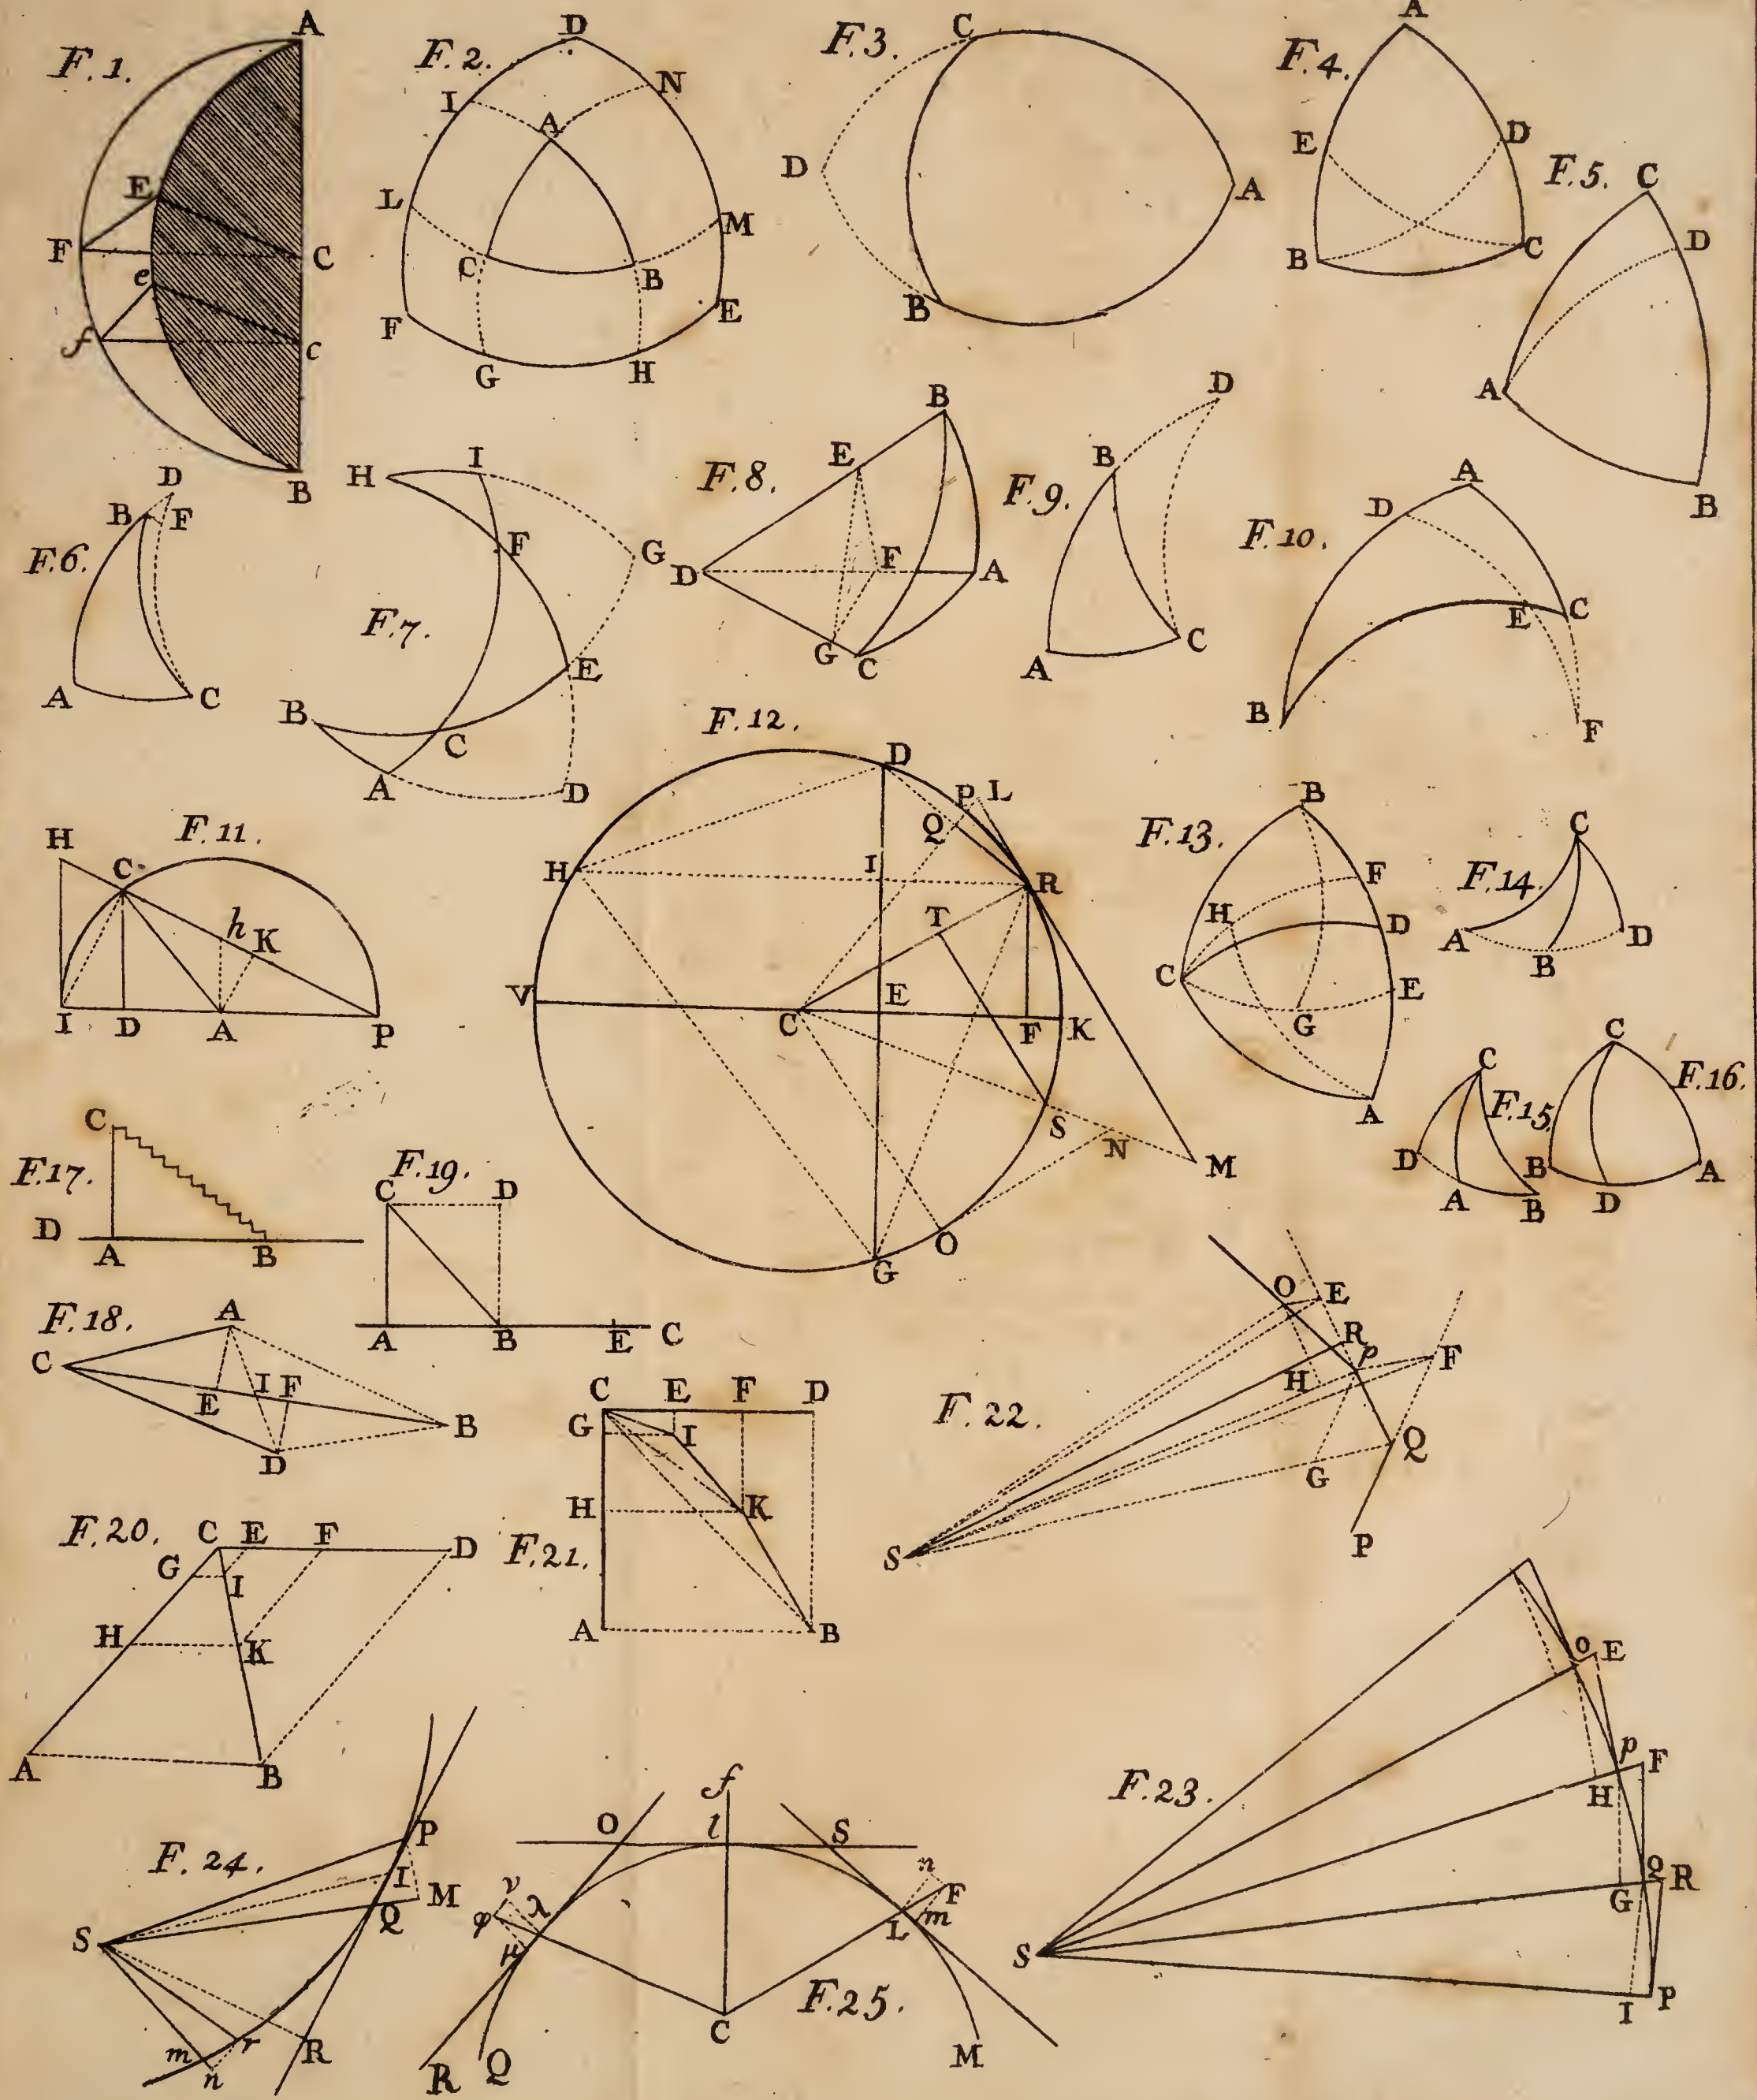 F.1.
A
E
F
C
e
f
c
B
F.2.
D
I
N
A
L
M
C
B
F
E
G
H
F.3.
C
D
A
B
F.4.
A
E
D
B
C
F.5.
C
D
A
B
F.6.
D
B
F
A
C
F.7.
H
I
F
G
E
B
C
A
D
F.8.
B
E
D
F
A
G
C
F.9.
D
B
A
C
F.10.
A
D
E
C
B
F
F.11.
H
C
h
K
I
D
A
P
F.12.
D
P
L
Q
H
I
R
T
V
E
C
F
K
S
N
M
O
G
F.13.
B
F
H
D
C
E
G
A
F.14.
C
A
B
D
F.15.
C
D
A
B
F.16.
C
B
D
A
F.17.
C
D
A
B
F.18.
A
C
I
F
E
B
D
F.19.
C
D
A
B
E
C
F.20.
C
E
F
D
G
I
H
K
A
B
F.21.
C
E
F
D
G
I
H
K
A
B
F.22.
O
E
R
p
F
H
Q
G
S
P
F.23.
o
E
p
F
H
Q
R
G
S
I
P
F.24.
P
I
M
Q
S
m
r
R
n
F.25.
f
O
l
S
n
F
ν
λ
m
φ
L
μ
C
R
Q
M